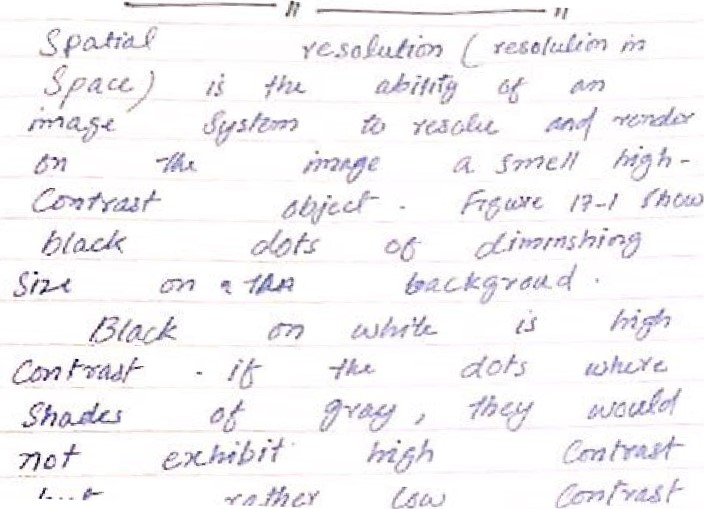 Spatial resolution ( resolution in
Space) is the ability of an
image System to resolve and render
on the image a smell high-
Contrast object . Figure 17-1 Show
black dots of diminshing
Size on a backgroud .
Black on white is high
Contrast . if the dots where
Shades of gray , they would
not exhibit high Contrast
rather low Contrast